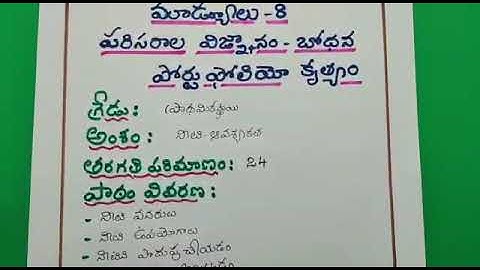 మాడ్యూలు - 8
పరిసరాల విజ్ఞానం - బోధన
పోర్టు ఫోలియో కృత్యం
గ్రేడు : ప్రాథమికస్థాయి
అంశం : నీటి - ఆవశ్యకత
తరగతి పరిమాణం : 24
పాఠం వివరణ :
- నీటి వనరులు
- నీటి ఉపయోగాలు
- నీటిని పొదుపు చేయడం